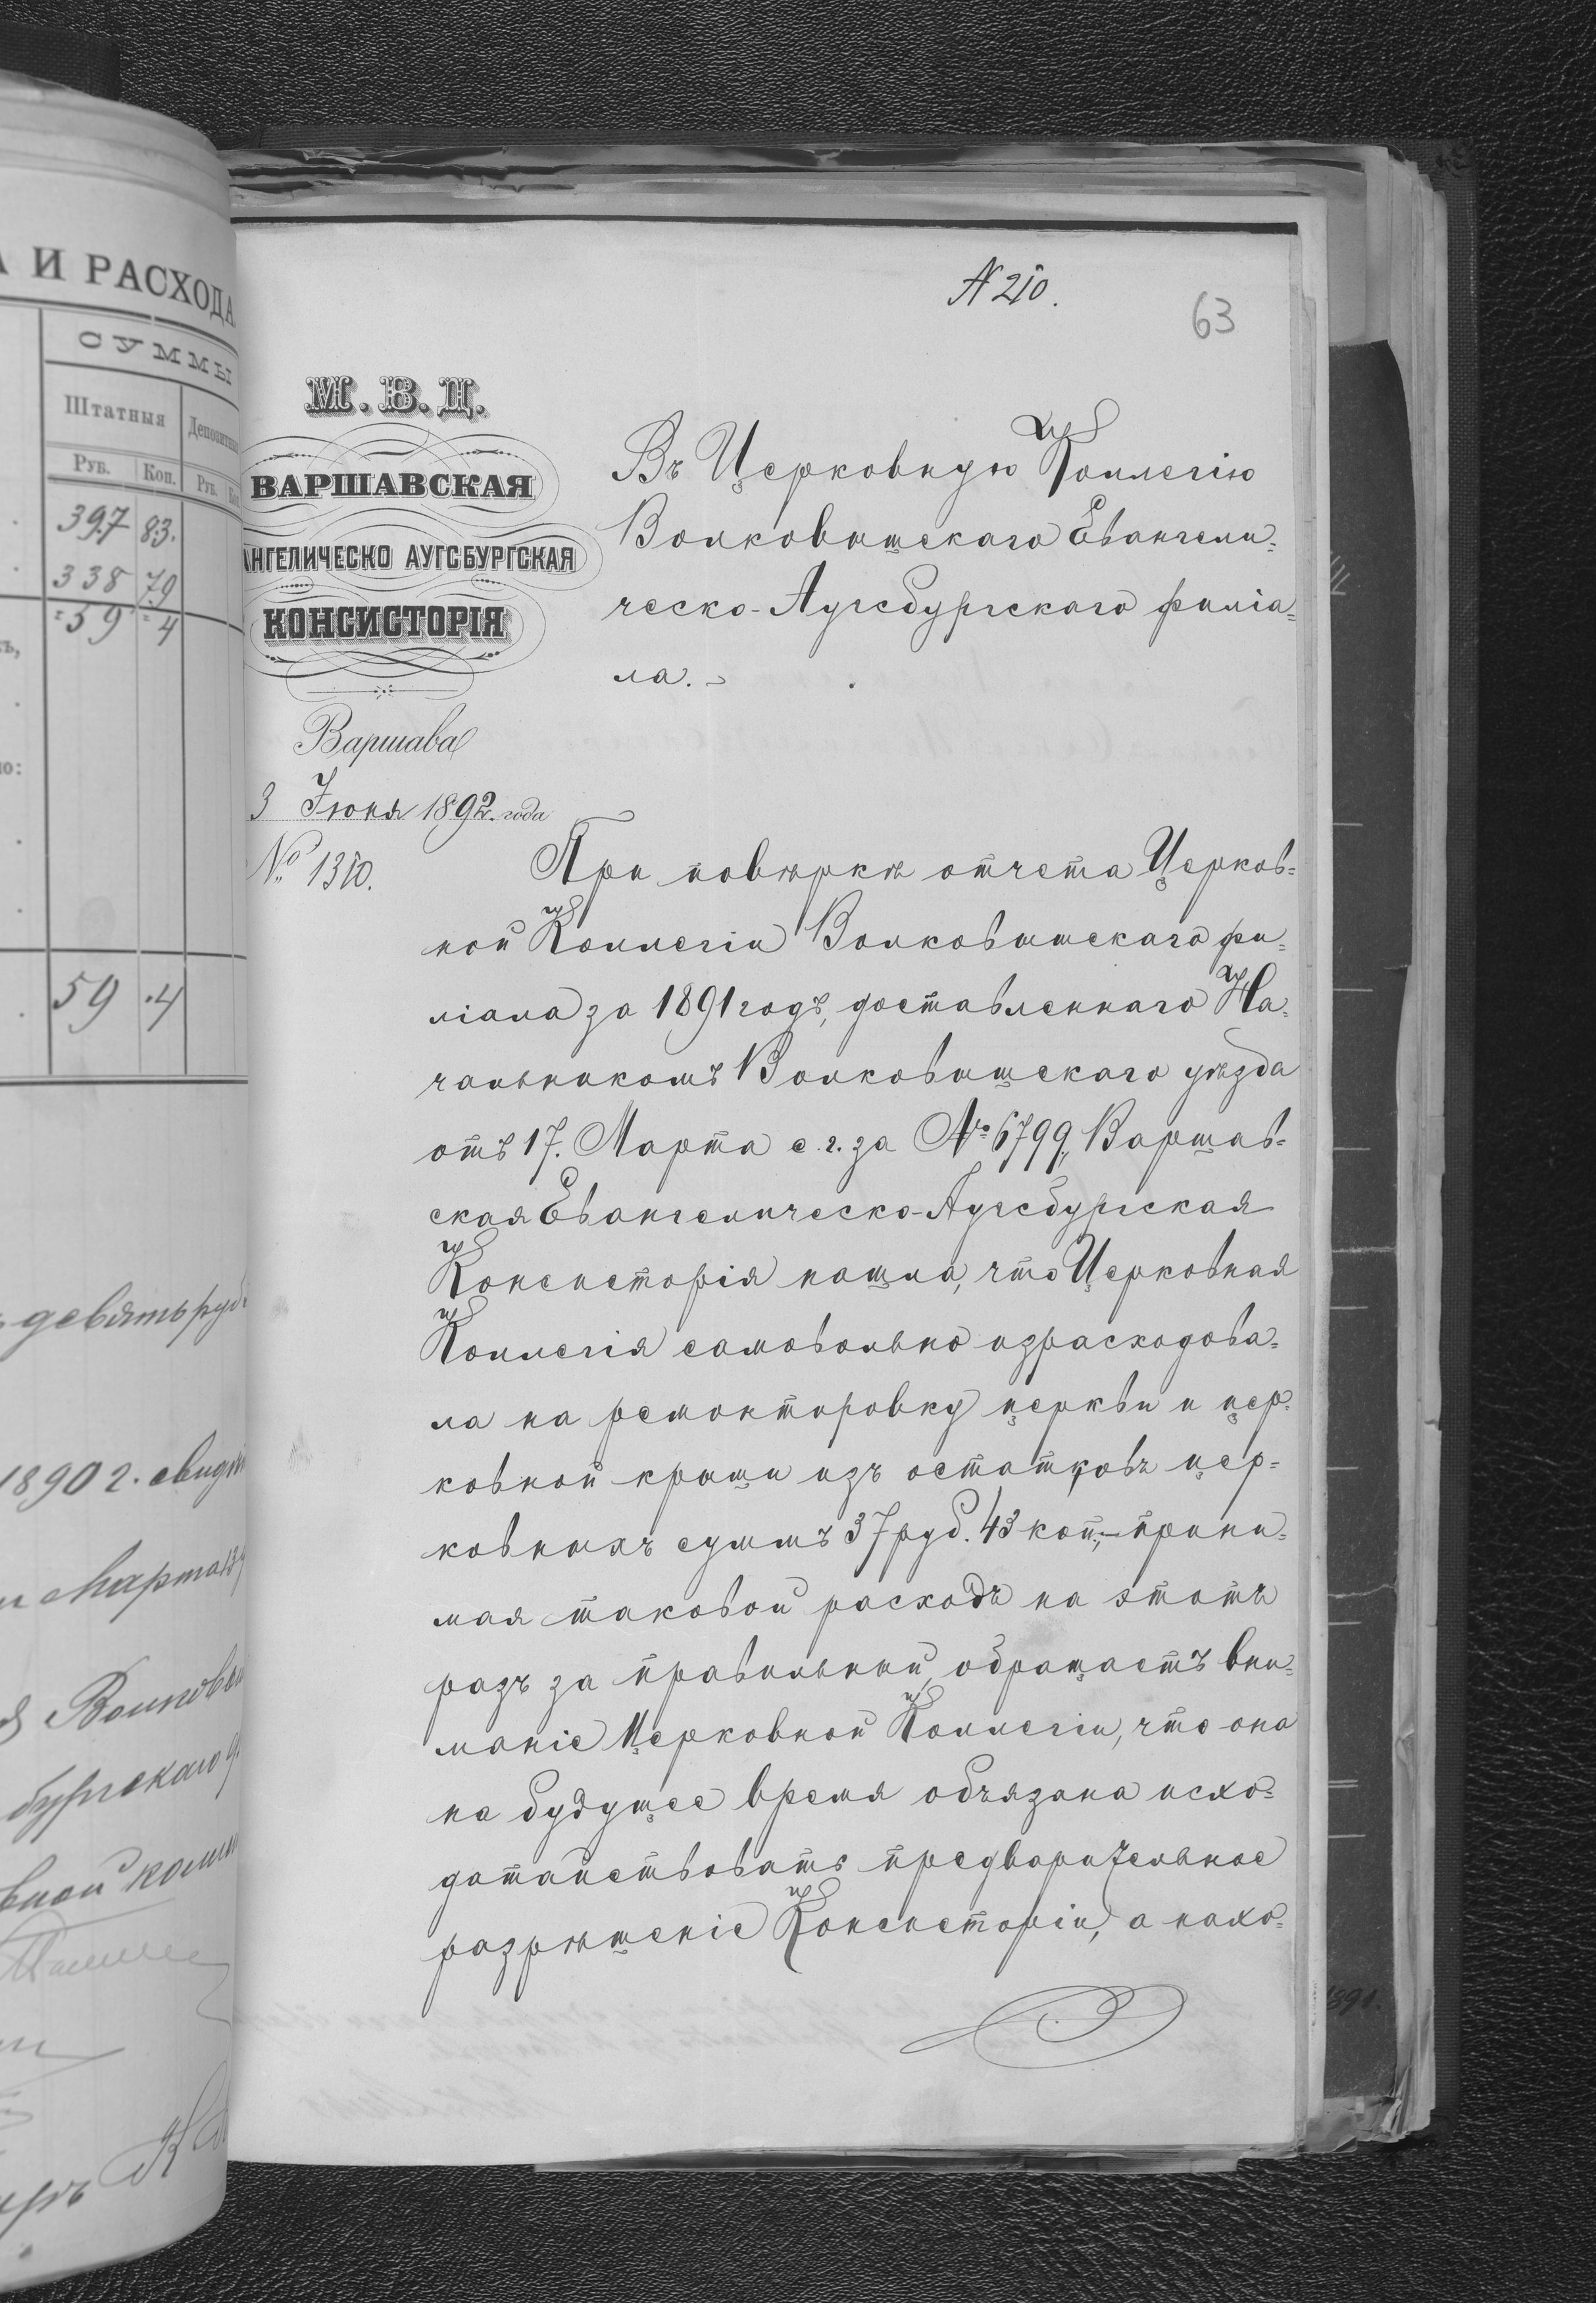 А И РАСХОДА
СУММЫ
Штатныя
Руб. Коп. Руб.
397 83.
338 79
=59 =4
59 .4
девять руб
1890 г.
Марта
бургскаго
вной
N 210.
63
М.В.Д.
ВАРШАВСКАЯ
АНГЕЛИЧЕСКО АУГСБУРГСКАЯ
КОНСИСТОРІЯ
Варшава
3 Іюня 1892. года
№ 1310.
Въ Церковную Коллегію
Волковышскаго Евангели=
ческо-Аугсбургскаго филіа=
ла.
При повѣркѣ отчета Церков=
ной Коллегіи Волковышскаго фи=
ліала за 1891 годъ, доставленнаго На=
чальникомъ Волковышскаго уѣзда
отъ 17. Марта с. г. за № 6799, Варшав=
ская Евангелическо-Аугсбургская
Консисторія нашла, что Церковная
Коллегія самовольно израсходова=
ла на ремонтировку церкви и цер=
ковной крыши изъ остатковъ цер=
ковныхъ суммъ 37 руб. 43 коп.,– прини=
мая таковой расходъ на этотъ
разъ за правильный, обращаетъ вни=
маніе Церковной Коллегіи, что она
на будущее время объязана исхо=
датайствовать предварительное
разрѣшеніе Консисторіи, а нахо=
1891.